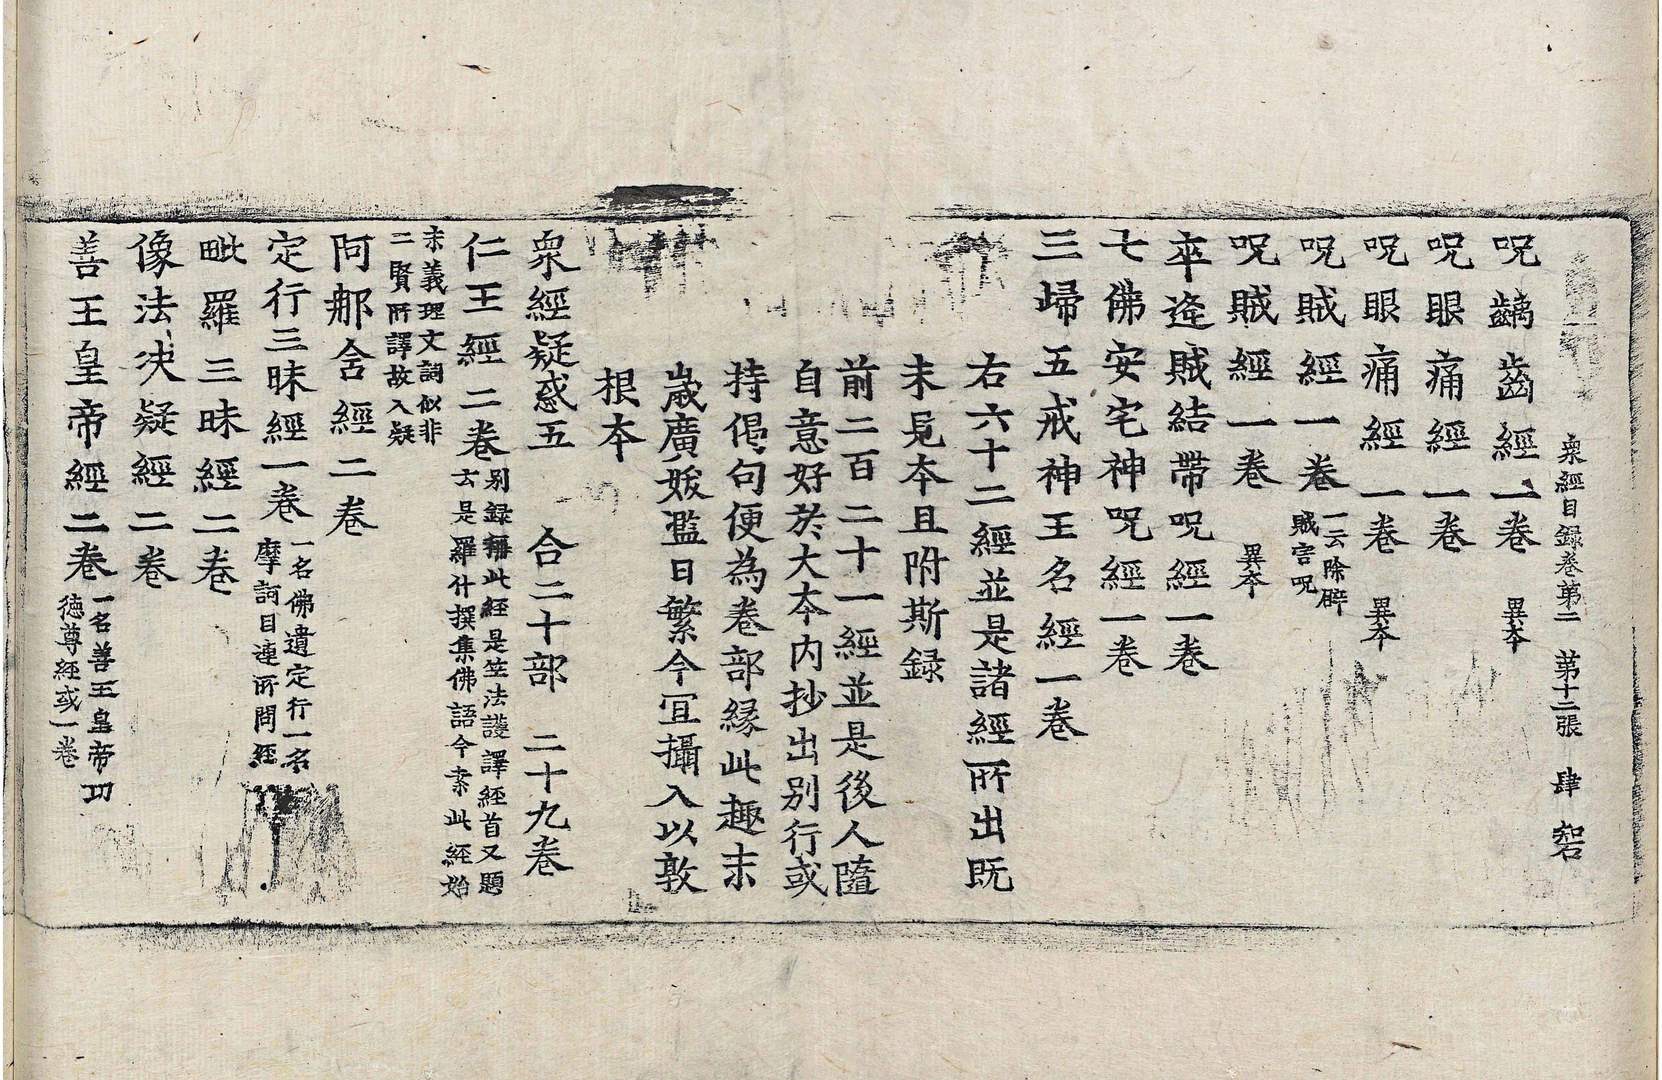 衆經目録卷第二 第十二張 肆
呪齲齒經一卷 異本
呪眼痛經一卷
呪眼痛經一卷 異本
呪賊經一卷 一云除辟
賊害呪
呪賊經一卷 異本
卒逄賊結帶呪經一卷
七佛安宅神呪經一卷
三歸五戒神王名經一卷
右六十二經並是諸經所出既
未見本且附斯録
前二百二十一經並是後人隨
自意好於大本内抄出别行或
持偈句便為卷部緣此趣末
歲廣妭濫日繁今冝攝入以敦
根本
衆經疑惑五 合二十部 二十九卷
仁王經二卷 别録稱此經是竺法護譯經首又題
云是羅什撰集佛語今案此經始
末義理文詞似非
二賢所譯故入疑
阿那含經二卷
定行三昧經一卷 一名佛遺定行一名
摩訶目連所問經
毗羅三昧經二卷
像法決疑經二卷
善王皇帝經二卷 一名善王皇帝功
德尊經或一卷